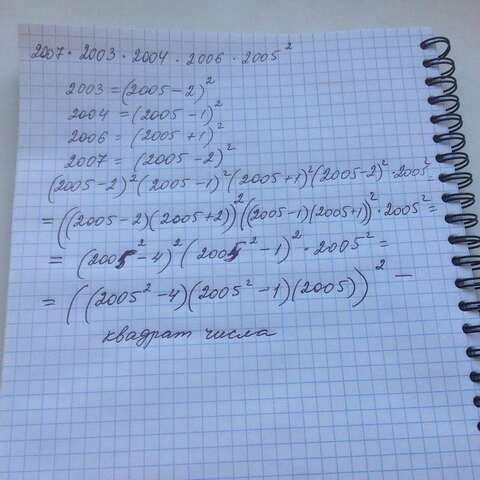 2007 · 2003 · 2004 · 2006 · 2005²
2003 = (2005 - 2)²
2004 = (2005 - 1)²
2006 = (2005 + 1)²
2007 = (2005 - 2)²
(2005 - 2)² (2005 - 1)² (2005 + 1)² (2005 - 2)² · 2005²
= ((2005 - 2)(2005 + 2))² ((2005 - 1)(2005 + 1))² · 2005² =
= (2005² - 4)² (2005² - 1)² · 2005² =
= ((2005² - 4)(2005² - 1)(2005))² —
квадрат числа